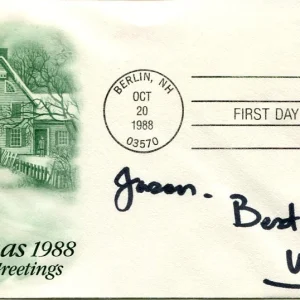 BERLIN, NH
OCT
20
1988
03570
FIRST DAY
Jason.
Best
as 1988
reetings